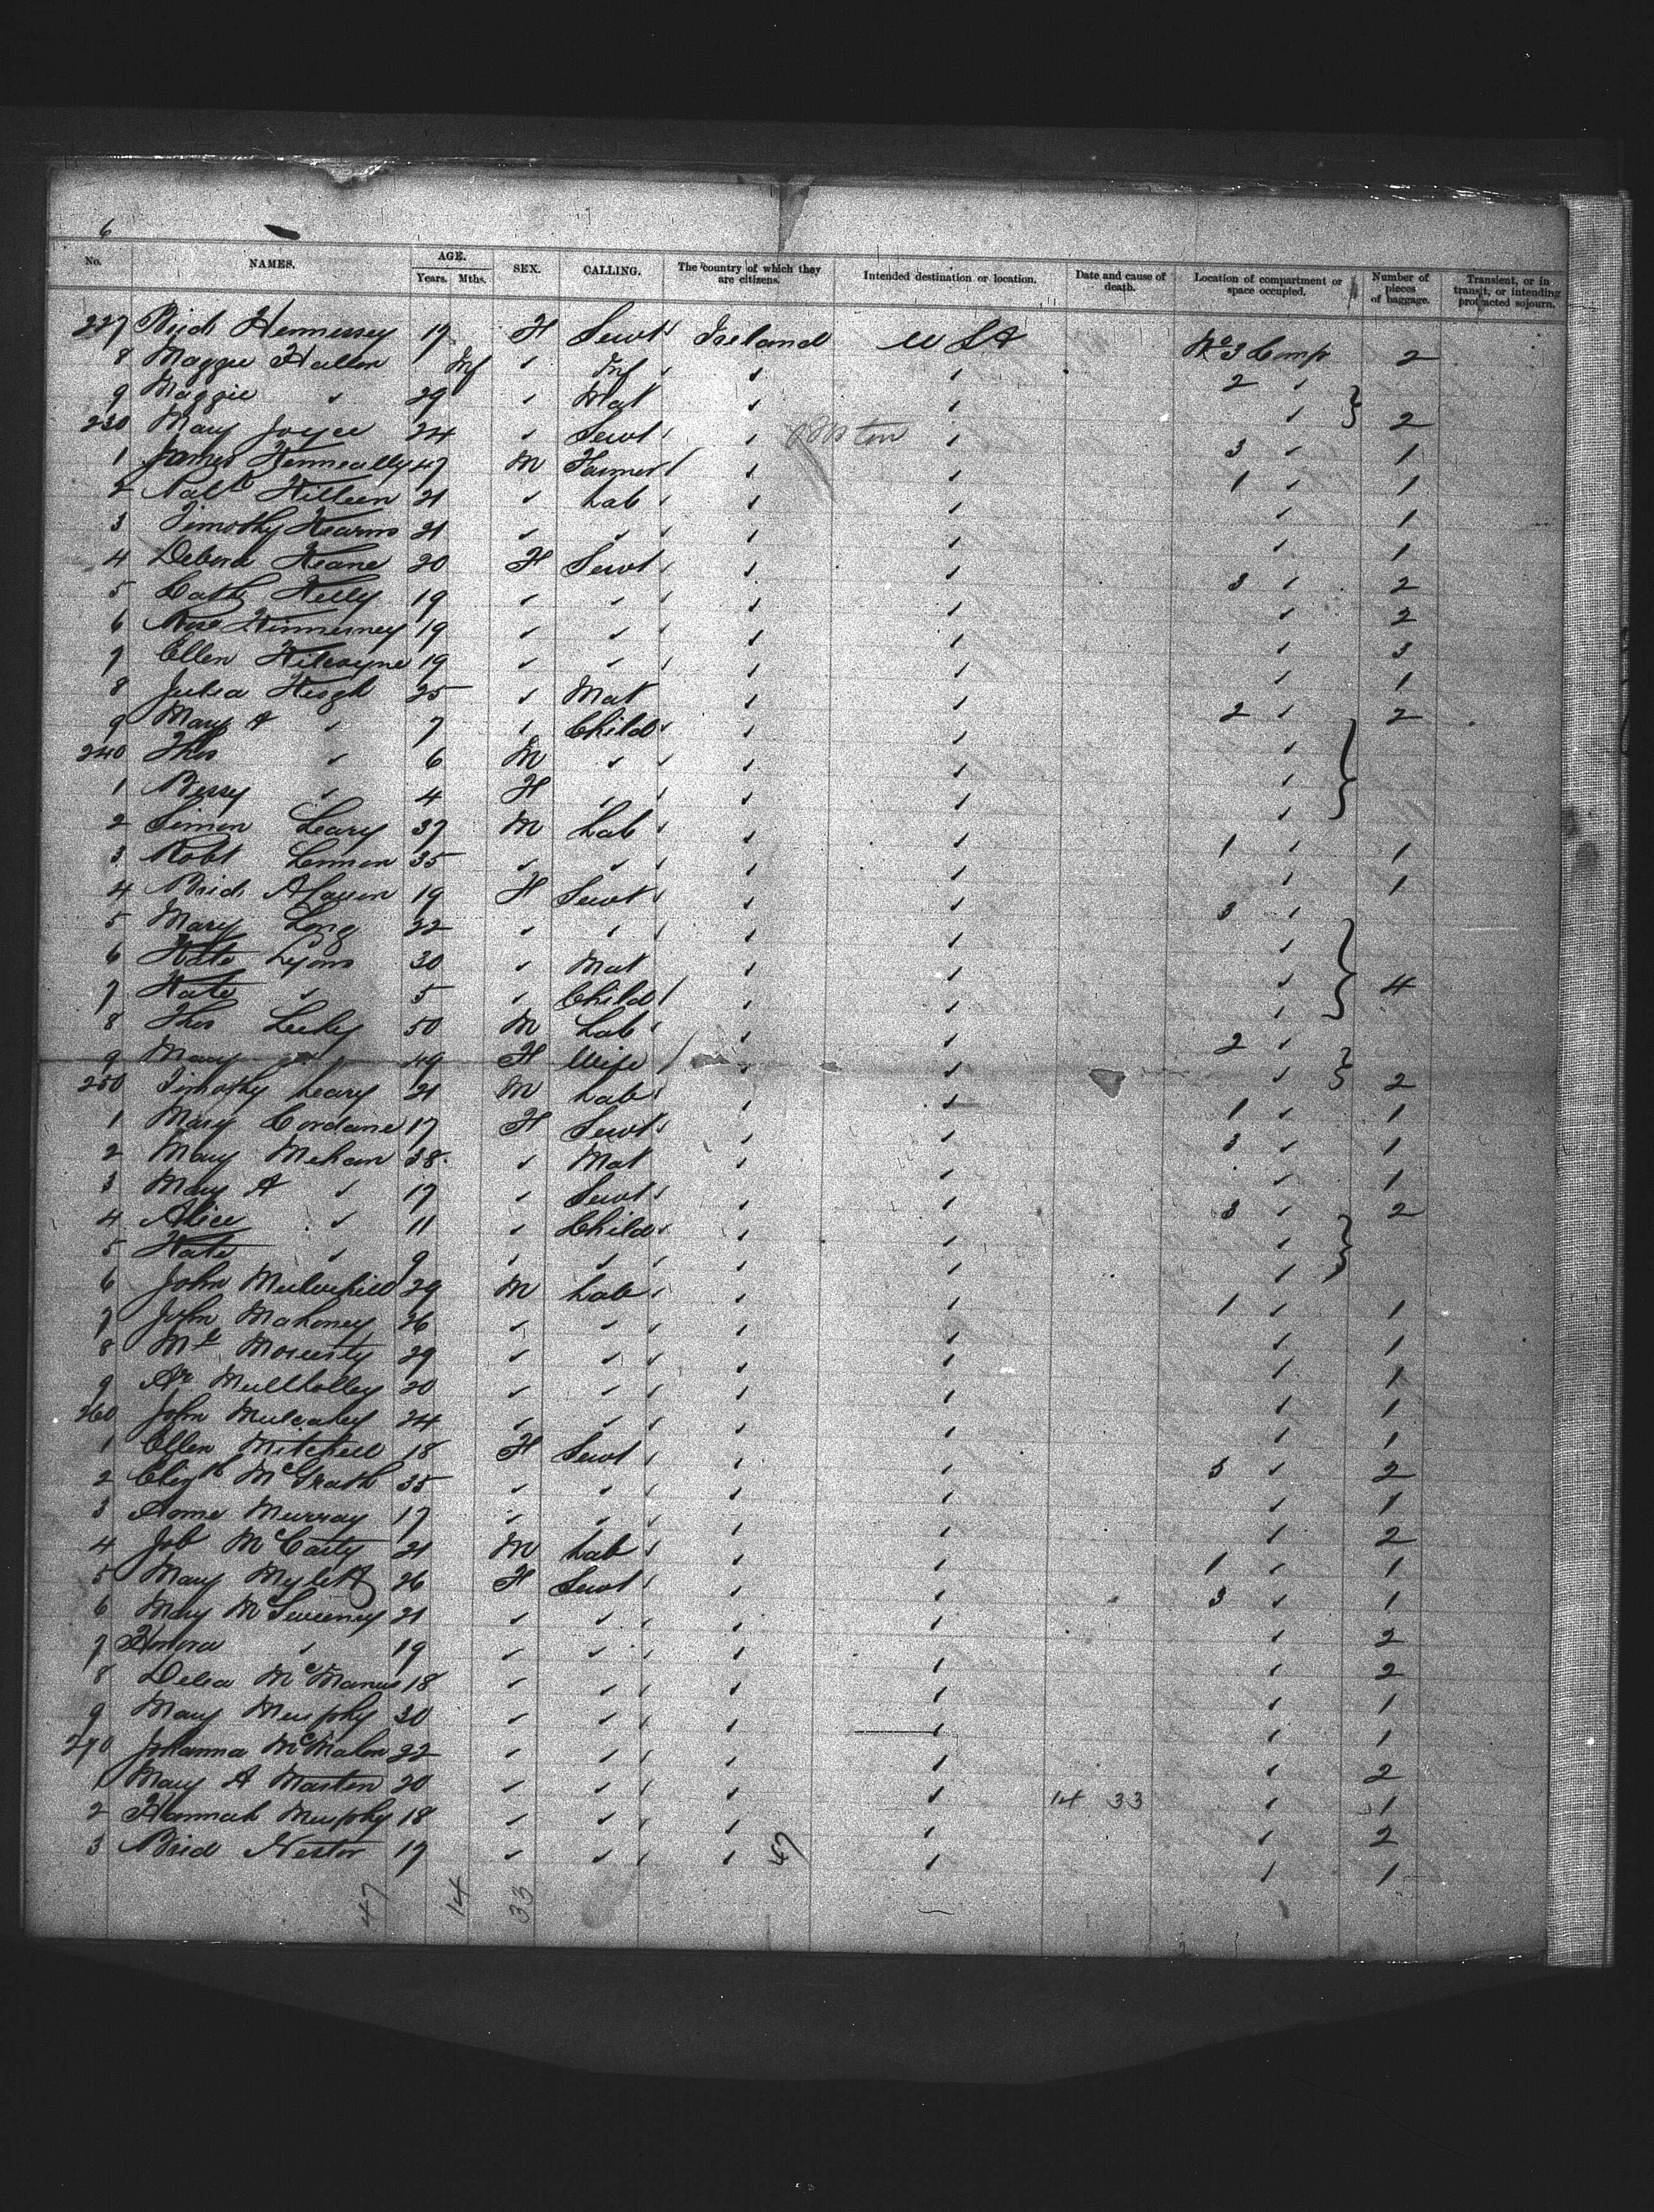 6
No. NAMES. AGE. Years. Mths. SEX. CALLING. The country of which they are citizens. Intended destination or location. Date and cause of death. Location of compartment or space occupied. Number of pieces of baggage. Transient, or in transit, or intending protracted sojourn.
227 Brid Hennessey 19 F Servt Ireland U St No 3 Comp 2
8 Maggie Hallon Inf ✓ Inf ✓ ✓ 2 ✓
9 Maggie ✓ 29 ✓ Mat ✓ ✓ ✓ 2
230 Mary Joyce 24 ✓ Servt ✓ ✓ 3 ✓ 1
1 James Kenneally 47 M Farmer ✓ ✓ 1 ✓ 1
2 Killeen 21 ✓ Lab ✓ ✓ ✓ 1
3 Timothy Kearns 21 ✓ ✓ ✓ ✓ ✓ 1
4 Debora Keane 20 F Servt ✓ ✓ 3 ✓ 2
5 Cath Kelly 19 ✓ ✓ ✓ ✓ ✓ 2
6 Rose Kinnerney 19 ✓ ✓ ✓ ✓ ✓ 3
7 Ellen Kilcoyne 19 ✓ ✓ ✓ ✓ ✓ 1
8 Julia Keogh 25 ✓ Mat ✓ ✓ 2 ✓ 2
9 Mary A ✓ 7 ✓ Child ✓ ✓ ✓
240 Thos ✓ 6 M ✓ ✓ ✓ ✓
1 Bessy ✓ 4 F ✓ ✓ ✓ ✓
2 Simon Leary 37 M Lab ✓ ✓ 1 ✓ 1
3 Robt Lennon 35 ✓ ✓ ✓ ✓ ✓ 1
4 Brid 19 F Servt ✓ ✓ 3 ✓
5 Mary Long 22 ✓ ✓ ✓ ✓ ✓
6 Kate Lyons 30 ✓ Mat ✓ ✓ ✓ 4
7 Kate ✓ 5 ✓ Child ✓ ✓ ✓
8 Thos Leehy 50 M Lab ✓ ✓ 2 ✓
9 Mary ✓ 49 F Wife ✓ ✓ ✓ 2
250 Timothy Leary 21 M Lab ✓ ✓ 1 ✓ 1
1 Mary Cordane 17 F Servt ✓ ✓ 3 ✓ 1
2 Mary Mehan 38 ✓ Mat ✓ ✓ ✓ 1
3 Mary A ✓ 17 ✓ Servt ✓ ✓ 3 ✓ 2
4 Alice ✓ 11 ✓ Child ✓ ✓ ✓
5 Kate ✓ 9 ✓ ✓ ✓ ✓ ✓
6 John Mulvihill 29 M Lab ✓ ✓ 1 ✓ 1
7 John Mahoney 26 ✓ ✓ ✓ ✓ ✓ 1
8 Ml Moriarty 29 ✓ ✓ ✓ ✓ ✓ 1
9 Mullholley 20 ✓ ✓ ✓ ✓ ✓ 1
260 John Mulcahey 24 ✓ ✓ ✓ ✓ ✓ 1
1 Ellen Mitchell 18 F Servt ✓ ✓ 3 ✓ 2
2 Elizth McGrath 35 ✓ ✓ ✓ ✓ ✓ 1
3 Annie Murray 17 ✓ ✓ ✓ ✓ ✓ 2
4 Job McCarty 21 M Lab ✓ ✓ 1 ✓ 1
5 Mary Mylett 26 F Servt ✓ ✓ 3 ✓ 1
6 Mary McSweeney 21 ✓ ✓ ✓ ✓ ✓ 2
7 Honora ✓ 19 ✓ ✓ ✓ ✓ ✓ 2
8 Delia McManus 18 ✓ ✓ ✓ ✓ ✓ 1
9 Mary Murphy 30 ✓ ✓ ✓ ✓ ✓ 1
270 Johanna McMahon 22 ✓ ✓ ✓ ✓ ✓ 2
1 Mary A Marten 20 ✓ ✓ ✓ ✓ 14 33 ✓ 1
2 Hannah Murphy 18 ✓ ✓ ✓ ✓ ✓ 2
3 Brid Nestor 17 ✓ ✓ ✓ 47 ✓ ✓ 1
47 14 33